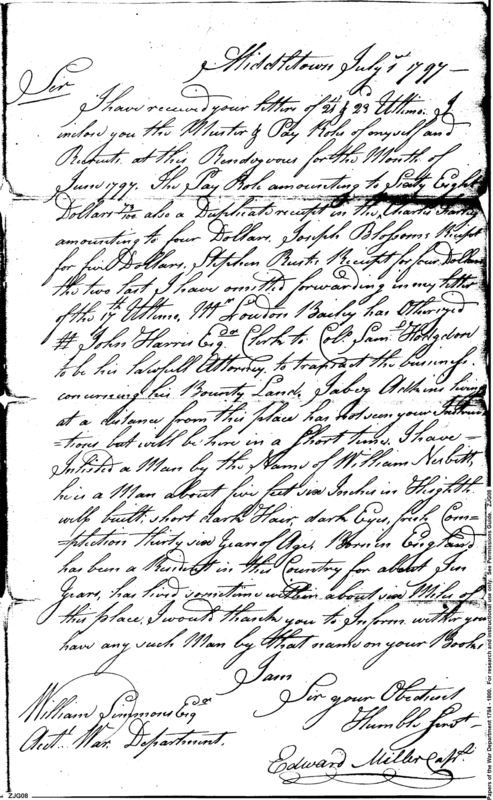 Middletown July 1st 1797 —
Sir
I have received your letters of 21 & 23d Ultimo. I
inclose you the Muster & Pay Roles of myself and
Recruits at this Rendezvous for the Month of
June 1797. The Pay Role amounting to Sixty Eight
Dollars 73/100 also a Duplicate receipt in the Charles
amounting to four Dollars, Joseph Blosoms Receipt
for five Dollars, Stephen Rusts Receipt for four Dollars
the two last I have omitted forwarding in my letter
of the 17th Ultimo, Mr Loudon Bailey has Otherized
# John Harris Esqr Clerk to Colo Saml Hodgdon
to be his lawfull Attorney, to transact the business
concerning his Bounty Land, Jabez Adkins living
at a distance from this place has not seen your Instruc
=tions but will be here in a Short time. I have —
Inlisted a Man by the Name of William Nesbitt,
he is a Man about five feet six Inches in Heighth
well built, short dark Hair, dark Eyes, fresh Com=
=plection thirty six Years of Age, Born in England
has been a Resident in this Country for about
Years, has lived sometime within about six Miles of
this place, I would thank you to Inform wither you
have any such Man by that name on your Books
I am
Sir your Obedient
Humble Servt —
Edward Miller Capt.
William Simmons Esqr
Acct. War Department.
ZJG08
Papers of the War Department 1784 - 1800. For research and instructional use only. See Permissions Guide. ZJG08